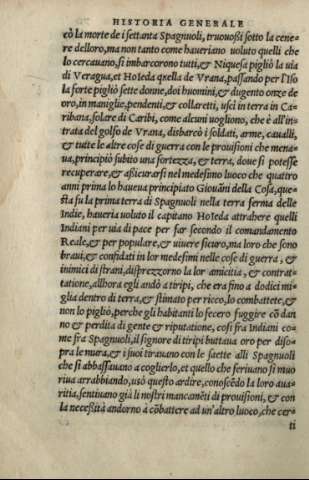 HISTORIA GENERALE
cò la morte de i settanta Spagnuoli, truouoßi sotto la cene-
re dell oro, ma non tanto come haueriano uoluto quelli che
lo cercauano, si imbarcorono tutti, & Niquesa pigliò la uia
di Veragua, et Hoieda qsella de Vrana, passando per l'Iso
la forte pigliò sette donne, doi huomini, & dugento onze de
oro, in maniglie, pendenti, & collaretti, uscì in terra in Ca-
ribana, solare di Caribi, come alcuni uogliono, che è all'in-
trata del golfo de Vrana, disbarcò i soldati, arme, caualli,
& tutte le altre cose di guerra con le prouisioni che mena-
ua, principiò subito una fortezza, & terra, doue si potesse
recuperare, & asicurarsi nel medesimo luoco che quattro
anni prima lo haueua principiato Giouãni della Cosa, que-
sta fu la prima terra di Spagnuoli nella terra ferma delle
Indie, haueria uoluto il capitano Hoieda attrahere quelli
Indiani per uia di pace per far secondo il comandamento
Reale, & per populare, & uiuere sicuro, ma loro che sono
braui, & confidati in lor medesimi nelle cose di guerra, &
inimici di strani, disprezzorno la lor amicitia, & contrat-
tatione, allhora egli andò a tiripi, che era fino a dodici mi-
glia dentro di terra, & stimato per ricco, lo combattete, &
non lo pigliò, perche gli habitanti lo fecero fuggire cõ dan
no & perdita di gente & riputatione, cosi fra Indiani co-
me fra Spagnuoli, il signore di tiripi buttaua oro per diso-
pra le mura, & i suoi tirauano con le saette alli Spagnuoli
che si abbassauano a coglierlo, et quello che feriuano si muo
riua arrabbiando, usò questo ardire, conoscẽdo la loro aua-
ritia, sentiuano già li nostri mancamẽti di prouisioni, & con
la necessità andorno a cõbattere ad un'altro luoco, che cer-
ti